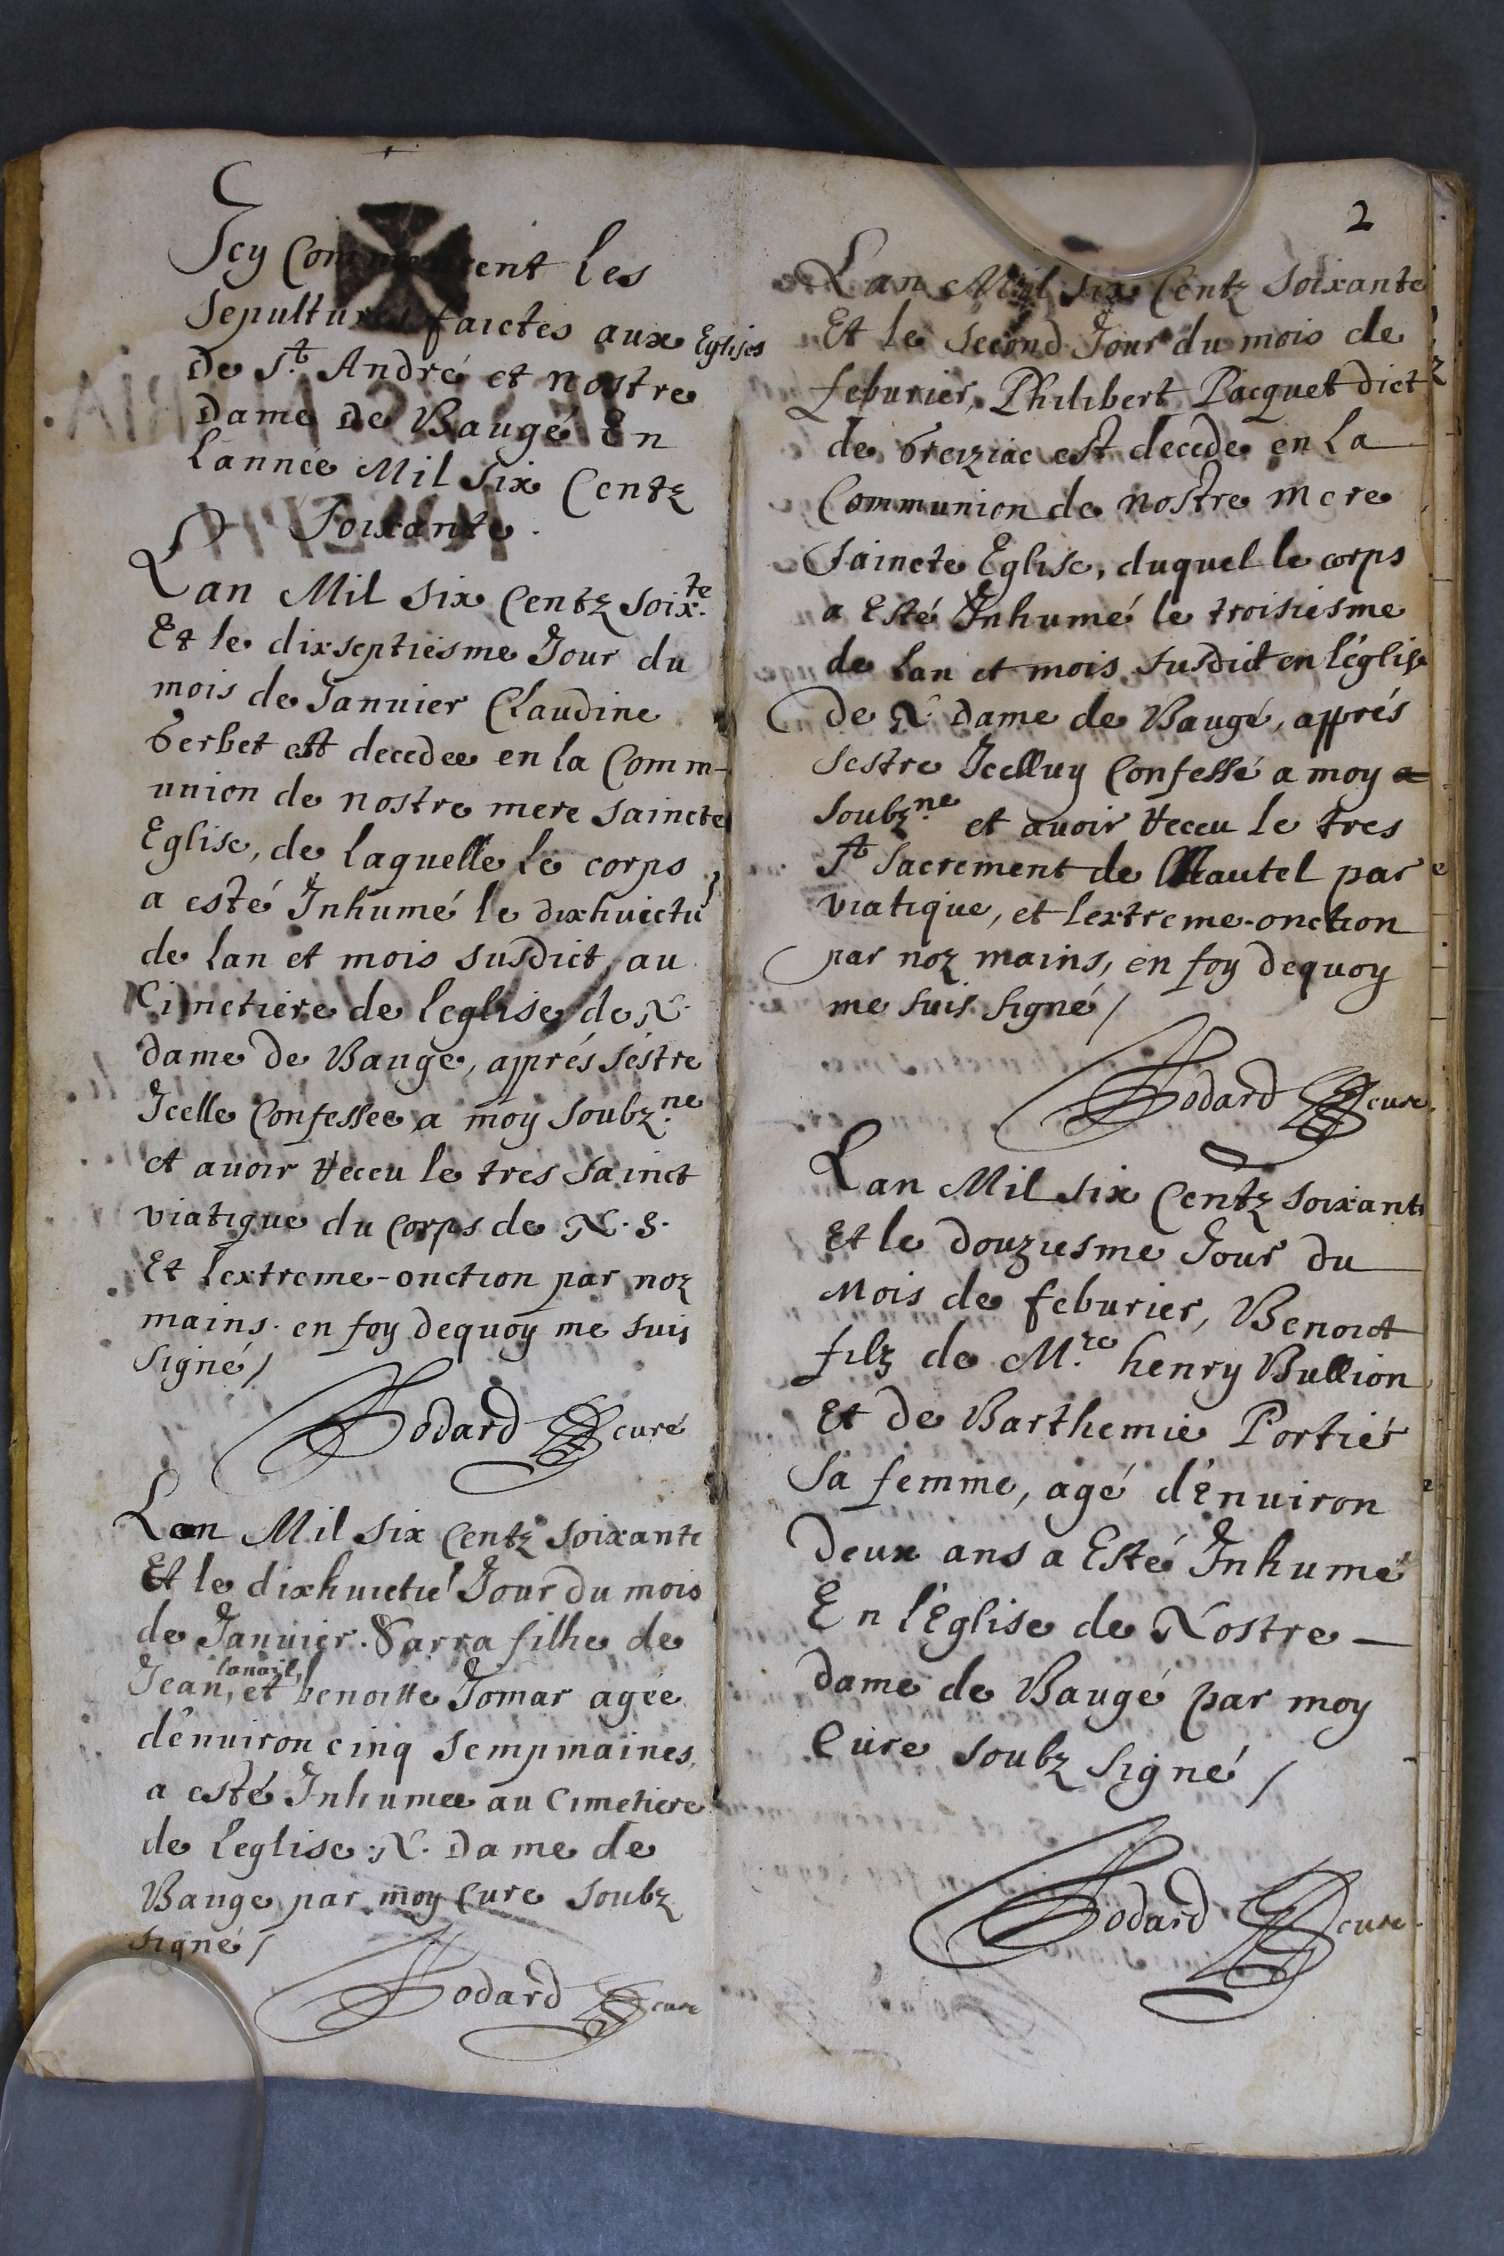 Icy Commencent les
sepultures faictes aux Eglises
De St. André et nostre
Dame De Baugé En
Lannee Mil six Centz
soixante.
Lan Mil six Centz soix.te
Et le dixseptiesme Jour du
mois de Januier Claudine
Gerbet est decedee en la Comm-
union de nostre mere saincte
Eglise, de laquelle le corps
a esté Inhumé le dixhuictie
de lan et mois susdict, au
Cimetiere de leglise de N.
dame de Bauge, apprés séstre
Icelle Confessee a moy soubz.ne
et auoir receu le tres sainct
viatique du corps de N. S.
Et lextreme-onction par noz
mains. en foy dequoy me suis
signé /
Godard curé
Lan Mil six Centz soixante
Et le dixhuictie Jour du mois
de Januier. Sarra filhe de
Jean, et benoitte Jomar agée
dénuiron cinq sempmaines,
a esté Inhumee au Cimetiere
de leglise N. Dame de
Bauge par moy Cure soubz
signé /
Godard cure
2
Lan Mil six Centz soixante
Et le second Jour du mois de
feburier, Philibert Pacquet dict
de Greiziac est decede en la
Communion de nostre mere
saincte Eglise, duquel le corps
a Esté Inhumé le troisiesme
de lan et mois susdict en léglise
De N. Dame de Baugé, apprés
sestre Icelluy Confessé a moy
soubz.ne et auoir receu le tres
St sacrement de lautel par
viatique, et lextreme-onction
par noz mains, en foy dequoy
me suis signé /
Godard cure.
Lan Mil six Centz soixante
Et le douziesme Jour du
Mois de feburier, Benoict
filz de M.re henry Bullion
Et de Barthemie Portier
sa femme, agé dénuiron
Deux ans a Esté Inhumé
En l'Eglise de Nostre –
Dame de Baugé par moy
Cure soubz signé /
Godard cure.